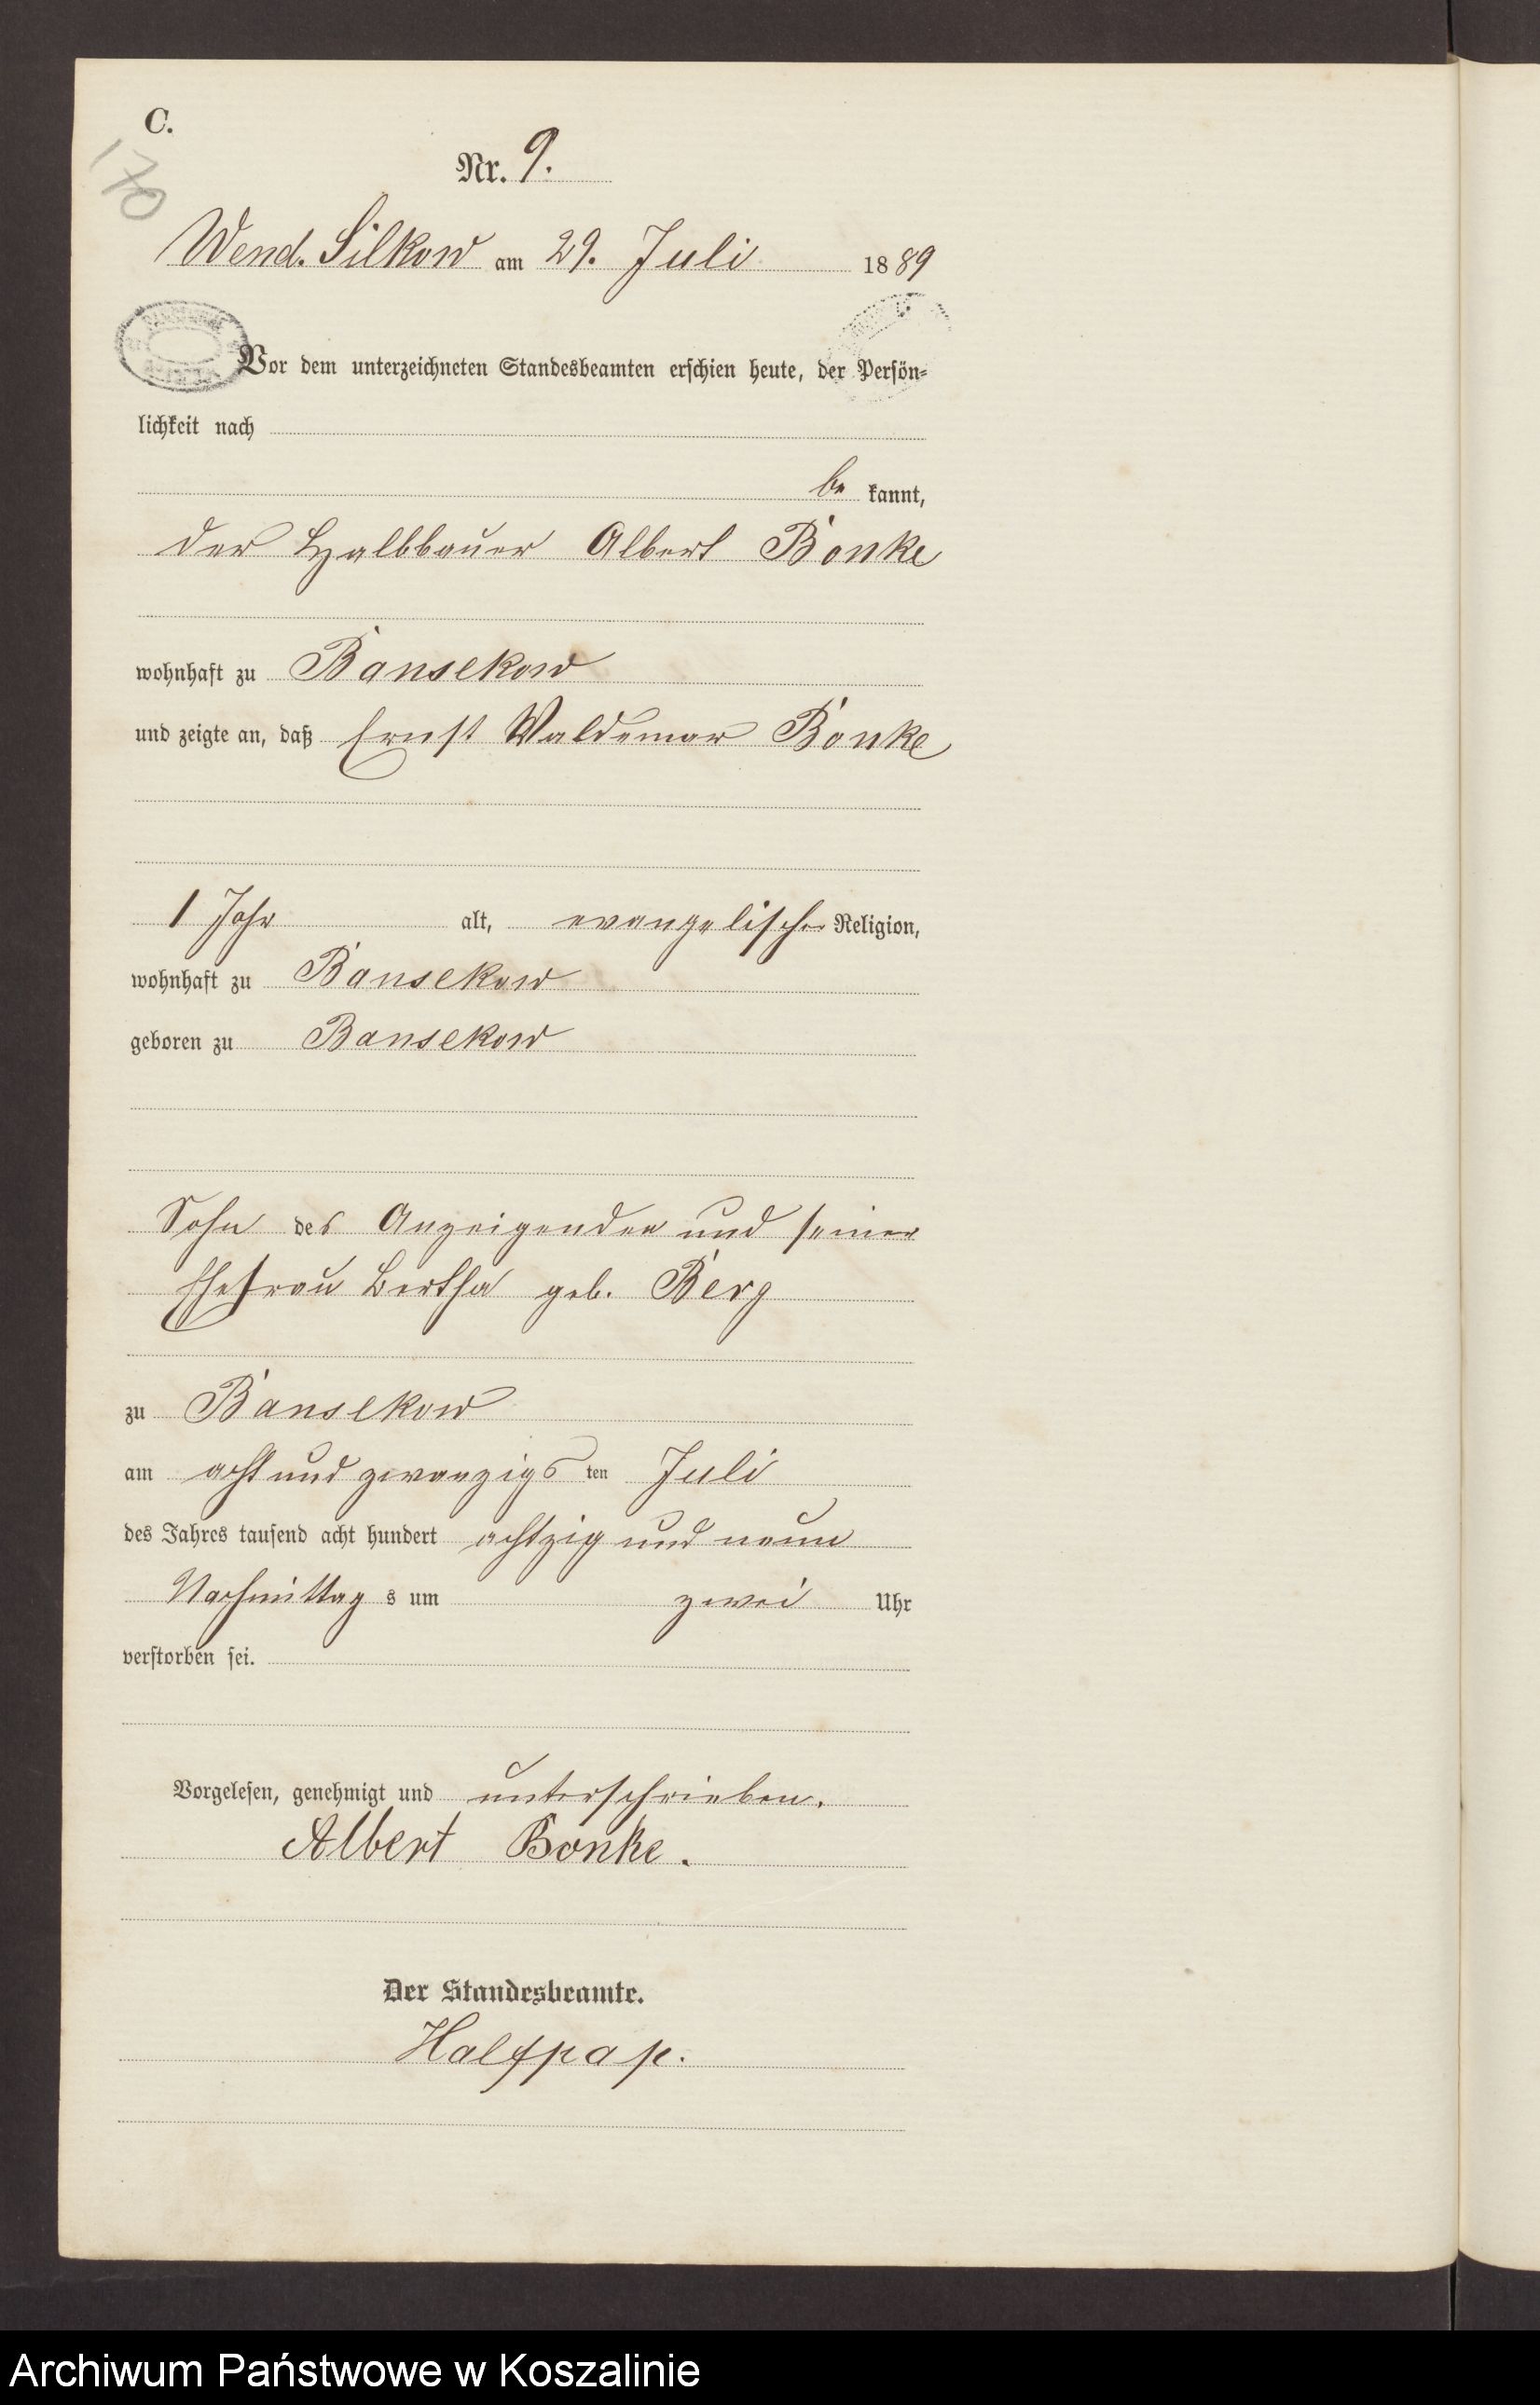 C.
170
Nr. 9.
Wend. Silkow am 29. Juli 1889
Vor dem unterzeichneten Standesbeamten erschien heute, der Persön-
lichkeit nach
be kannt,
der Halbbauer Albert Bonke
wohnhaft zu Bansekow
und zeigte an, daß Ernst Waldemar Bonke
1 Jahr alt, evangelischer Religion,
wohnhaft zu Bansekow
geboren zu Bansekow
Sohn des Anzeigenden und seiner
Ehefrau Bertha geb. Berg
zu Bansekow
am acht und zwanzigs ten Juli
des Jahres tausend acht hundert achtzig und neun
Nachmittag s um zwei Uhr
verstorben sei.
Vorgelesen, genehmigt und unterschrieben.
Albert Bonke.
Der Standesbeamte.
Halfpap.
Archiwum Państwowe w Koszalinie